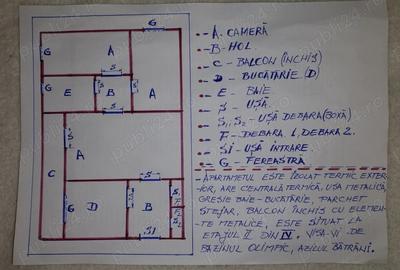 G
G
A
G
E
S
B
S
A
S
S
A
C
G
D
S
B
S1
F1
F2
A. CAMERĂ
B- HOL.
C- BALCON (ÎNCHIS)
D- BUCĂTĂRIE (D)
E - BAIE
S - UȘĂ.
S1, S2 - UȘĂ DEBARA (BOXĂ)
F- DEBARA 1, DEBARA 2.
SI- UȘĂ INTRARE
G - FEREASTRĂ
-APARTAMETUL ESTE IZOLAT TERMIC EXTER-
IOR, ARE CENTRALĂ TERMICĂ, UȘĂ METALICĂ,
GRESIE BAIE-BUCĂTĂRIE, PARCHET
STEJAR, BALCON ÎNCHIS CU ELEMEN-
TE METALICE, ESTE SITUAT LA
ETAJUL II DIN IV. VISA-VI DE
BAZINUL OLIMPIC, AZILUL BĂTRÂNI.